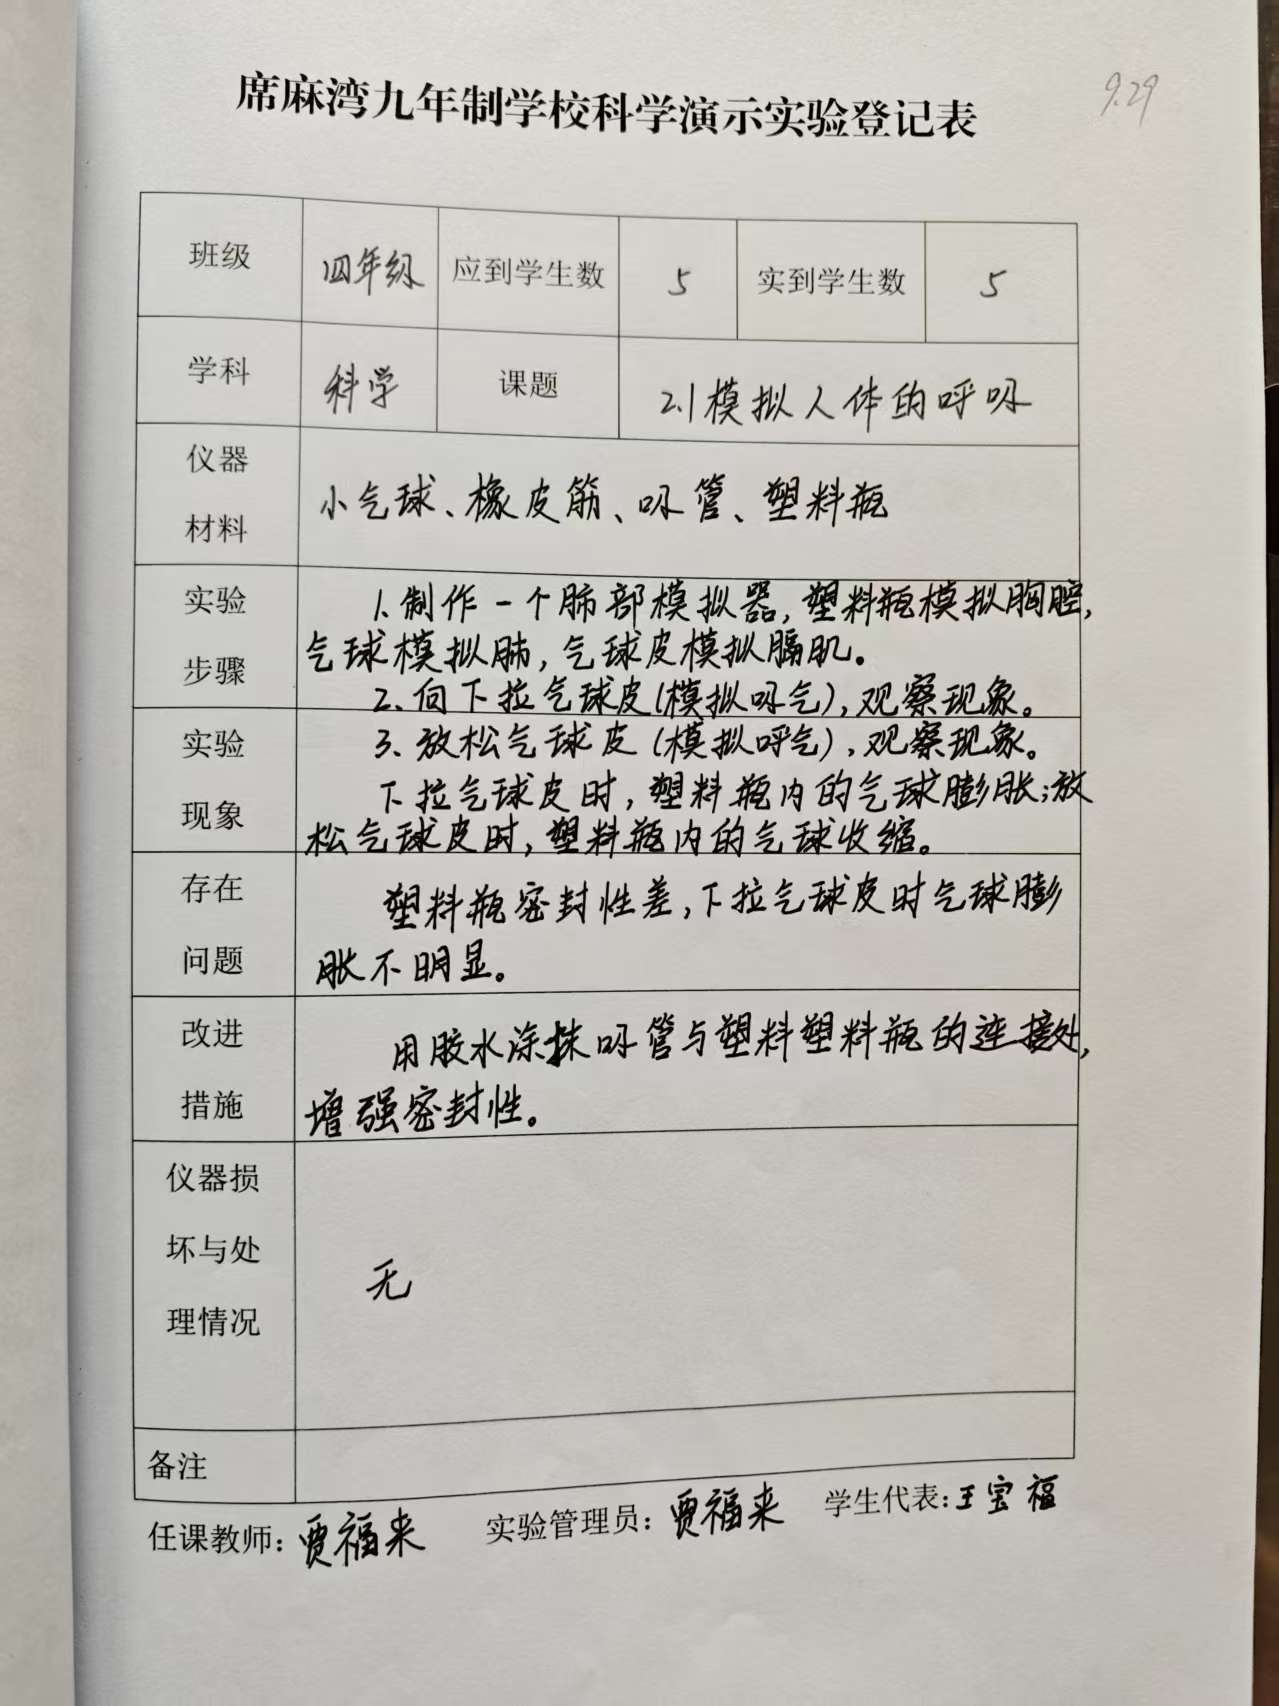 席麻湾九年制学校科学演示实验登记表
9.29
班级 四年级 应到学生数 5 实到学生数 5
学科 科学 课题 2.1模拟人体的呼吸
仪器
材料
小气球、橡皮筋、吸管、塑料瓶
实验
步骤
1.制作一个肺部模拟器,塑料瓶模拟胸腔,
气球模拟肺,气球皮模拟膈肌。
2、向下拉气球皮(模拟吸气),观察现象。
实验
现象
3、放松气球皮(模拟呼气),观察现象。
下拉气球皮时,塑料瓶内的气球膨胀;放
松气球皮时,塑料瓶内的气球收缩。
存在
问题
塑料瓶密封性差,下拉气球皮时气球膨
胀不明显。
改进
措施
用胶水涂抹吸管与塑料塑料瓶的连接处,
增强密封性。
仪器损
坏与处
理情况
无
备注
任课教师:贾福来 实验管理员:贾福来 学生代表:王宝福